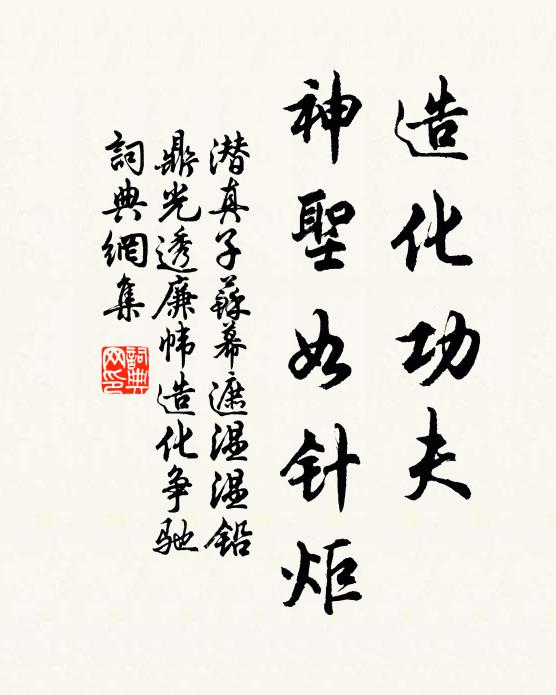 造化功夫
神聖如针炬
潜真子蘇幕遮温温铅
鼎光透廉帏造化争驰
詞典網集
詞典网印